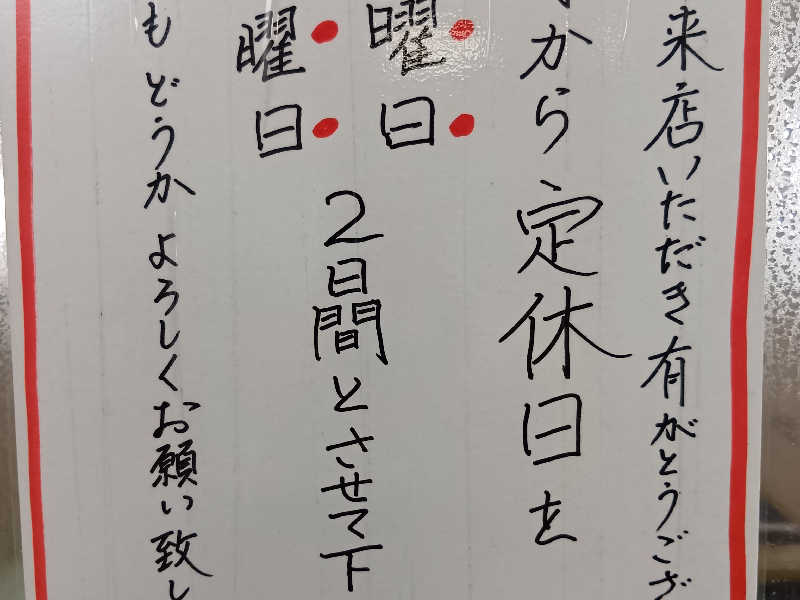 来店いただき有がとうござ
から定休日を
曜日
曜日
2日間とさせて下
もどうかよろしくお願い致し